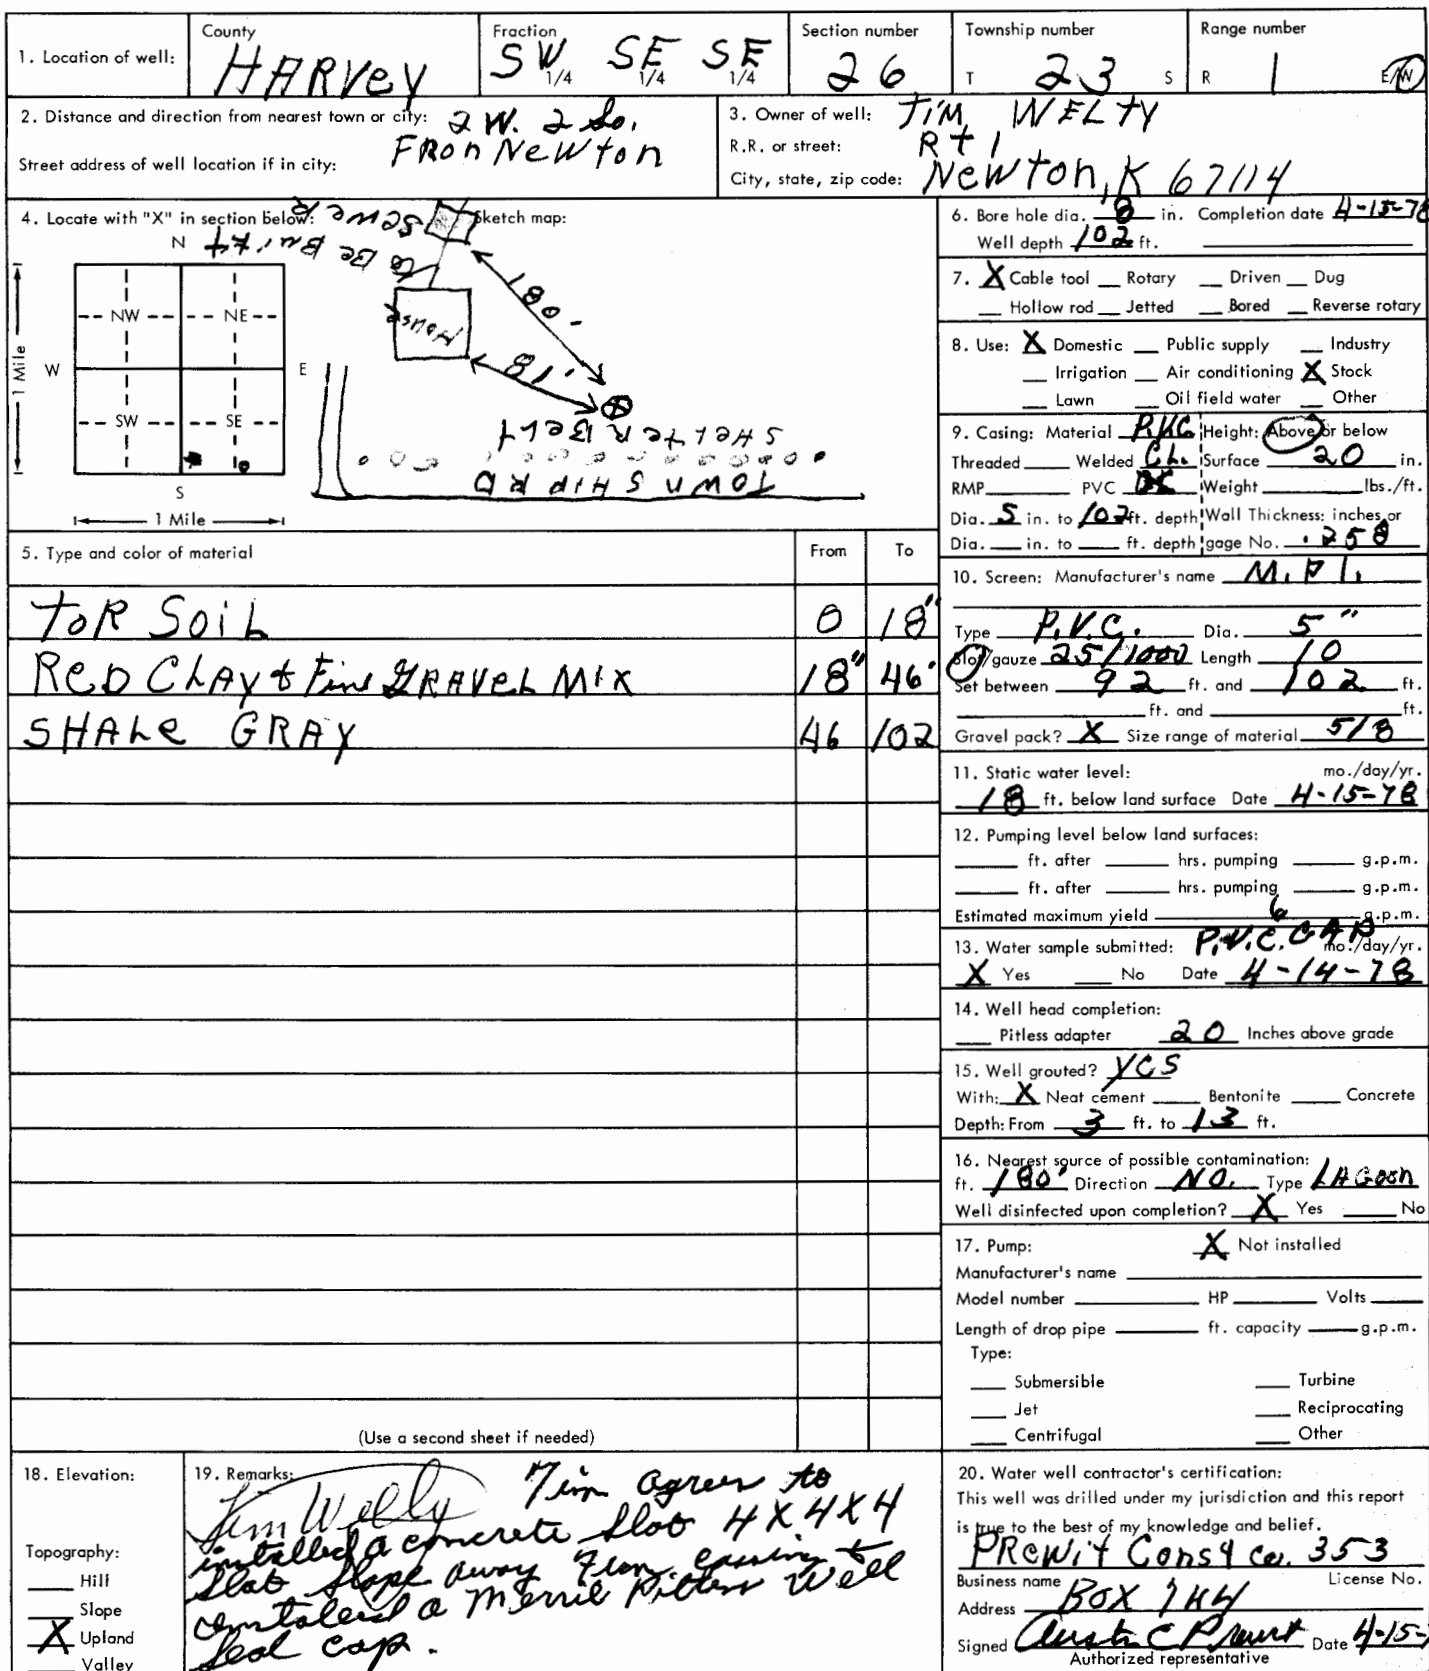 1. Location of well:
County
HARVey
Fraction
SW 1/4 SE 1/4 SE 1/4
Section number
26
Township number
T 23 S
Range number
R 1 E/W
2. Distance and direction from nearest town or city: 2 W. 2 So.
FRon NewTon
Street address of well location if in city:
3. Owner of well: JiM WELTY
R.R. or street: Rt 1
City, state, zip code: NewTon, K 67114
4. Locate with "X" in section below:
Sketch map:
N
NW NE
W E
SW SE
S
1 Mile
1 Mile
SeweR
to Be BuiLt
House
180'
81'
SHELTeR BeLT
TOWN SHIP RD
5. Type and color of material From To
ToR SoiL 0 18"
ReD CLAY & Fine GRAVeL MIX 18" 46'
SHALe GRAY 46 102
(Use a second sheet if needed)
6. Bore hole dia. 8 in. Completion date 4-15-78
Well depth 102 ft.
7. X Cable tool Rotary Driven Dug
Hollow rod Jetted Bored Reverse rotary
8. Use: X Domestic Public supply Industry
Irrigation Air conditioning X Stock
Lawn Oil field water Other
9. Casing: Material P.V.C. Height: Above or below
Threaded Welded CL. Surface 20 in.
RMP PVC Weight lbs./ft.
Dia. 5 in. to 102 ft. depth Wall Thickness: inches or
Dia. in. to ft. depth gage No. .258
10. Screen: Manufacturer's name M.P.I.
Type P.V.C. Dia. 5"
Slot/gauze 25/1000 Length 10
Set between 92 ft. and 102 ft.
ft. and ft.
Gravel pack? X Size range of material 5/8
11. Static water level: mo./day/yr.
18 ft. below land surface Date 4-15-78
12. Pumping level below land surfaces:
ft. after hrs. pumping g.p.m.
ft. after hrs. pumping g.p.m.
Estimated maximum yield 6 g.p.m.
13. Water sample submitted: P.V.C. CAP mo./day/yr.
X Yes No Date 4-14-78
14. Well head completion:
Pitless adapter 20 Inches above grade
15. Well grouted? YeS
With: X Neat cement Bentonite Concrete
Depth: From 3 ft. to 13 ft.
16. Nearest source of possible contamination:
ft. 180' Direction NO. Type LAGoon
Well disinfected upon completion? X Yes No
17. Pump: X Not installed
Manufacturer's name
Model number HP Volts
Length of drop pipe ft. capacity g.p.m.
Type:
Submersible Turbine
Jet Reciprocating
Centrifugal Other
18. Elevation:
Topography:
Hill
Slope
X Upland
Valley
19. Remarks:
Jim Welty Jim agrees to
installed a concrete slab 4 X 4 X 4
slab slope away from cassing &
a Merril Pittless Well
Seal cap.
20. Water well contractor's certification:
This well was drilled under my jurisdiction and this report
is true to the best of my knowledge and belief.
PReWiT Const co. 353
Business name License No.
Address BOX
Signed Date 4-15-
Authorized representative